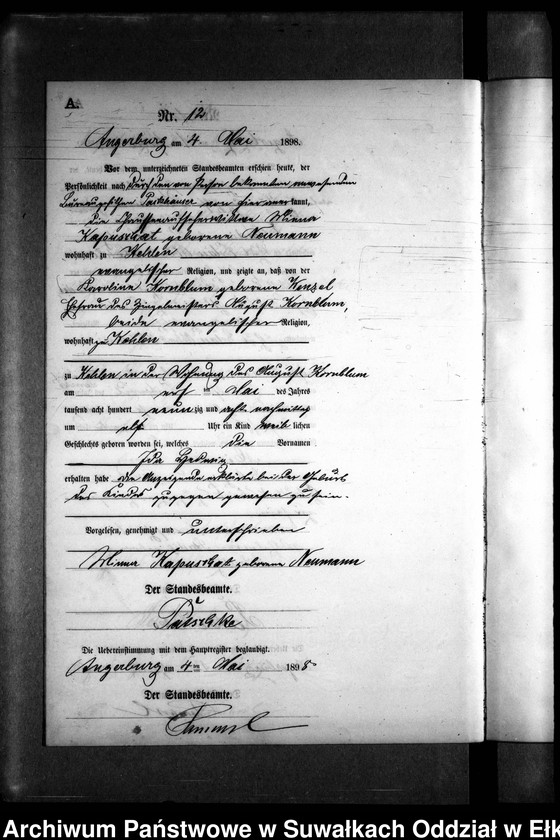 A.
Nr. 12
Angerburg am 4. Mai 1898.
Vor dem unterzeichneten Standesbeamten erschien heute, der
Persönlichkeit nach durch den von Person bekannten anwesenden
Bureaugehilfen von hier kannt,
die Chausseeaufseherwittwe Minna
Kapuschat geborene Neumann
wohnhaft zu Kehlen
evangelischer Religion, und zeigte an, daß von der
Karoline Kornblum geborene Wenzel
Ehefrau des Ziegelmeisters August Kornblum,
beide evangelischer Religion,
wohnhaft zu Kehlen
zu Kehlen in der Wohnung des August Kornblum
am Mai des Jahres
tausend acht hundert neunzig und acht nachmittags
um elf Uhr ein Kind weiblichen
Geschlechts geboren worden sei, welches die Vornamen
Ida Hedwig
erhalten habe die Anzeigende erklärte bei der Geburt
des Kindes zugegen gewesen zu sein.
Vorgelesen, genehmigt und unterschrieben
Minna Kapuschat geborene Neumann
Der Standesbeamte.
Die Uebereinstimmung mit dem Hauptregister beglaubigt.
Angerburg am 4 ten Mai 1898
Der Standesbeamte.
Archiwum Państwowe w Suwałkach Oddział w Ełk